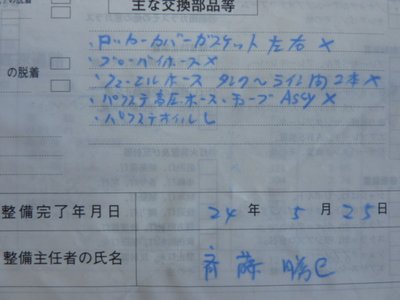 主な交換部品等
・ロッカーカバーガスケット 左右 ×
・ブローバイホース ×
・フューエルホース タンク〜ライン間 2本 ×
の脱着
・パワステ高圧ホース・チューブ Assy ×
・パワステオイル L
整備完了年月日 24年 5月 25日
整備主任者の氏名 斉藤 勝巳